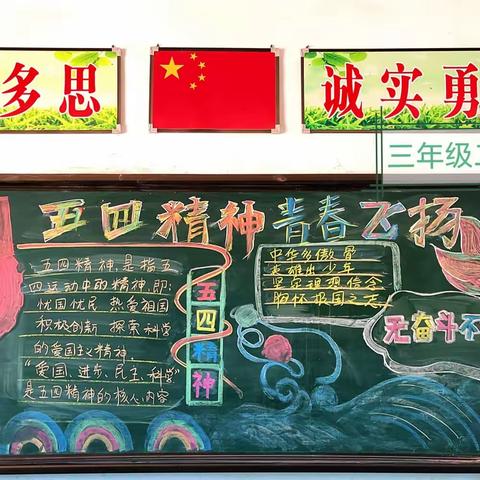 多思
诚实勇
三年级
五四精神 青春飞扬
五四精神是指五
四运动中的精神,即:
忧国忧民 热爱祖国
积极创新 探索科学
的爱国主义精神.
“爱国、进步、民主、科学”
是五四精神的核心内容
五四精神
中华多傲骨
英雄出少年
坚定理想信念
胸怀报国之志
无奋斗不